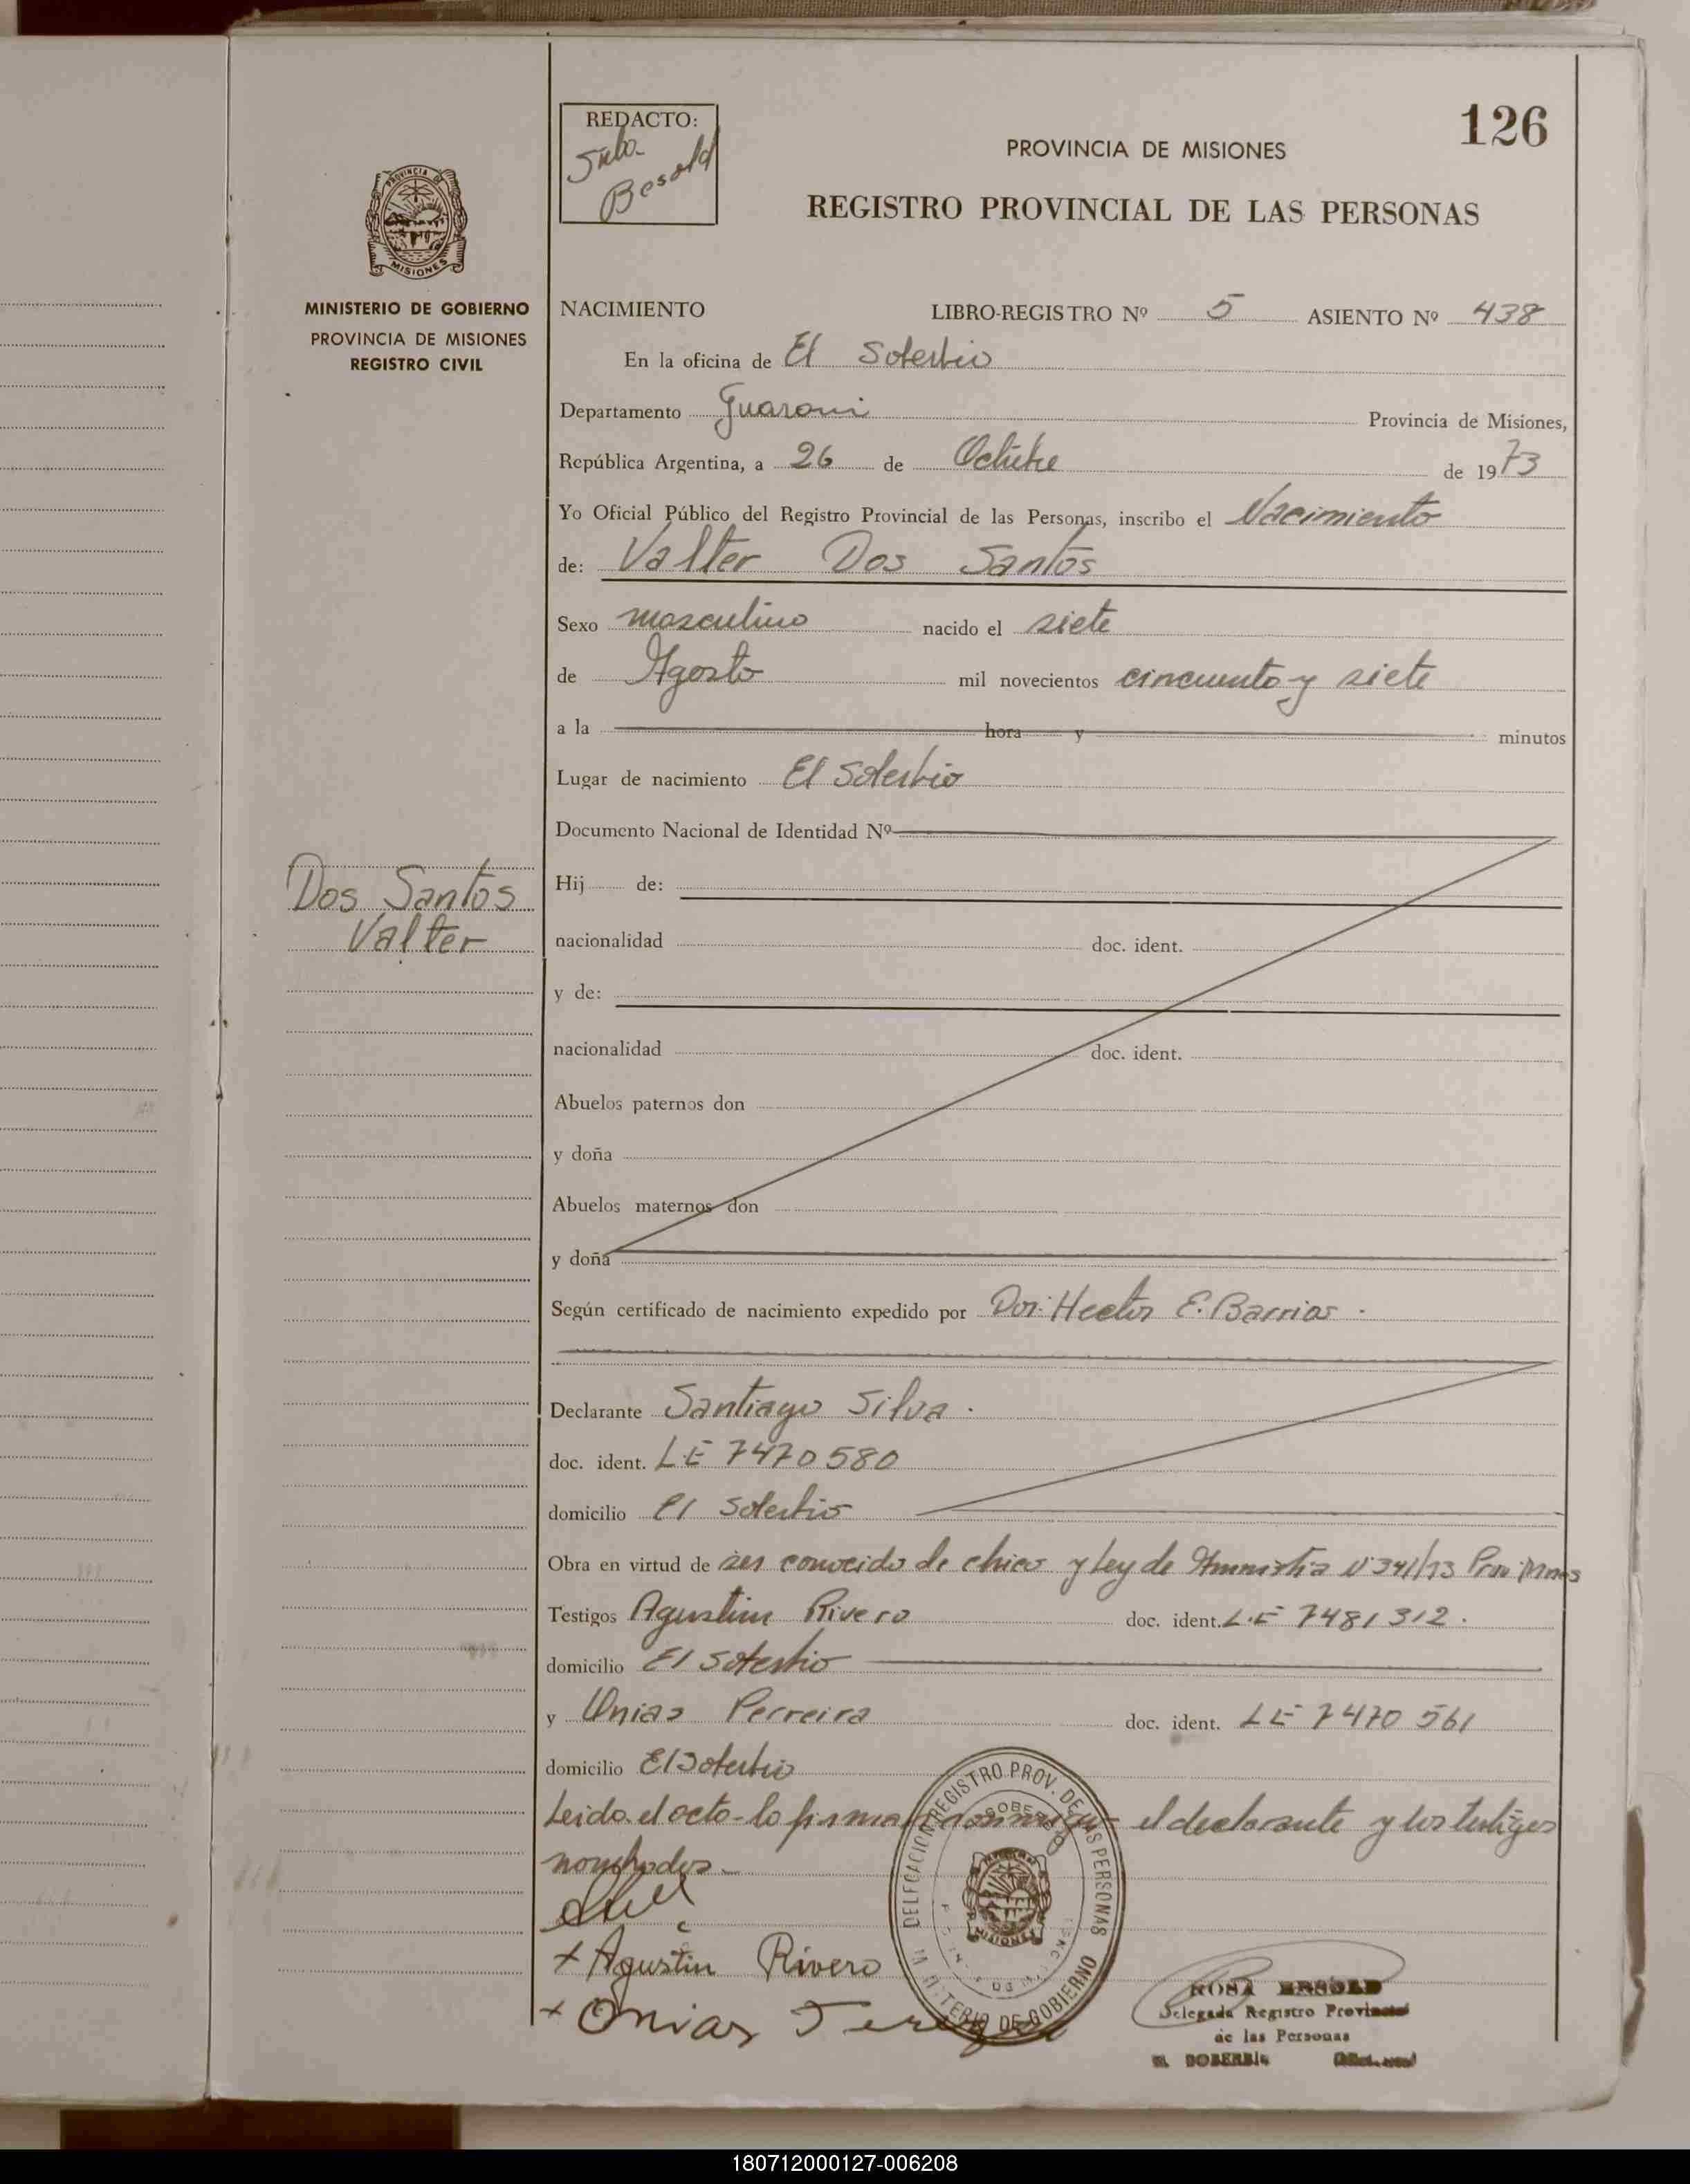 126
REDACTO:
Besold
PROVINCIA DE MISIONES
REGISTRO PROVINCIAL DE LAS PERSONAS
PROVINCIA DE
MISIONES
MINISTERIO DE GOBIERNO
PROVINCIA DE MISIONES
REGISTRO CIVIL
NACIMIENTO LIBRO-REGISTRO Nº 5 ASIENTO Nº 438
En la oficina de El Soberbio
Departamento Guarani Provincia de Misiones,
República Argentina, a 26 de Octubre de 1973
Yo Oficial Público del Registro Provincial de las Personas, inscribo el Nacimiento
de: Valter Dos Santos
Sexo masculino nacido el siete
de Agosto mil novecientos cincuenta y siete
a la hora y minutos
Lugar de nacimiento El Soberbio
Documento Nacional de Identidad Nº
Dos Santos
Valter
Hij de:
nacionalidad doc. ident.
y de:
nacionalidad doc. ident.
Abuelos paternos don
y doña
Abuelos maternos don
y doña
Según certificado de nacimiento expedido por Dor. Hector E. Barrios.
Declarante Santiago Silva.
doc. ident. LE 7470580
domicilio El Soberbio
Obra en virtud de ser conocido de chico y Ley de Amnistia Nº 341/73 Prov. Mnes
Testigos Agustin Rivero doc. ident. L.E 7481312.
domicilio El Soberbio
y Onias Perreira doc. ident. LE 7470561
domicilio El Soberbio
Leido el acto lo firma conmigo el declarante y los testigos
nombrados
DELEGACION REGISTRO PROV. DE LAS PERSONAS
MINISTERIO DE GOBIERNO
MISIONES
+ Agustin Rivero
+ Onias
ROSA BESOLD
Delegada Registro Provincial
de las Personas
EL SOBERBIO
180712000127-006208